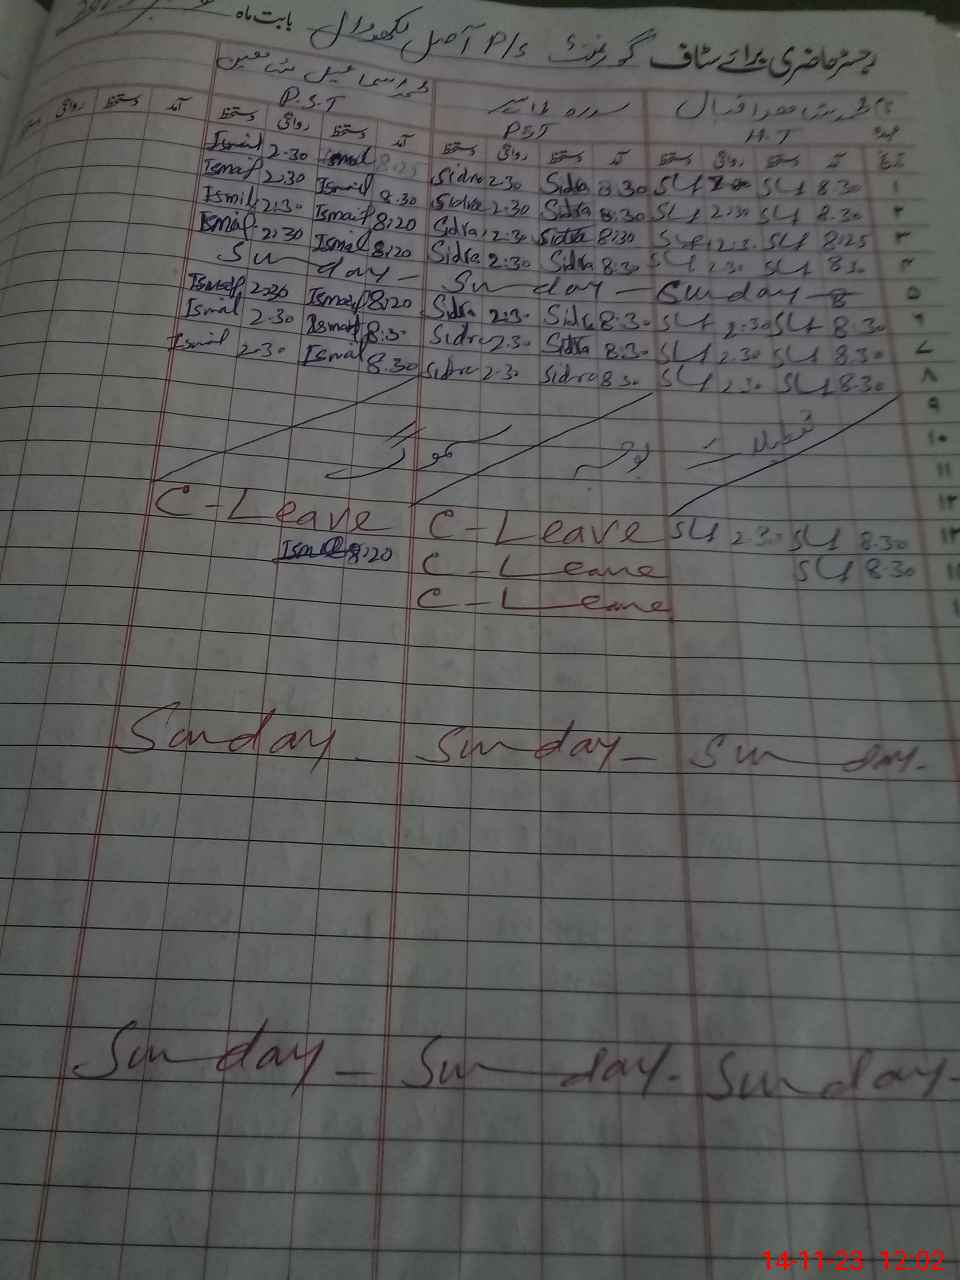 رجسٹر حاضری برائے سٹاف گورنمنٹ P/S آصل لکھووال بابت ماہ
محمد اقبال سدرہ محمد اسماعیل
H.T PST P.S.T
تاریخ آمد دستخط روانگی دستخط آمد دستخط روانگی دستخط آمد دستخط روانگی دستخط آمد دستخط روانگی
۱ 8.30 2.30 8.30 Sidra 2.30 Sidra 8:25 Ismail 2.30 Ismail
۲ 8.30 2.30 8.30 Sidra 2.30 Sidra 8.30 Ismail 2.30 Ismail
۳ 8:25 2.3. 8:30 Sidra 2.30 Sidra 8:20 Ismail 2:30 Ismil
۴ 8.30 2.30 8:30 Sidra 2:30 Sidra 8:20 Ismail 2:30 Ismail
۵ Sunday - Sunday - Sunday -
۶ 8.30 2.30 8.30 Sidra 2:30 Sidra 8:20 Ismail 2:30 Ismail
۷ 8.30 2.30 8:30 Sidra 2.30 Sidra 8:30 Ismail 2.30 Ismail
۸ 8.30 2.30 8.30 Sidra 2.30 Sidra 8.30 Ismail 2.30 Ismail
۹
۱۰ تعطیلات بوجہ سموگ
۱۱
۱۲
۱۳ 8.30 2.30 C-Leave C-Leave
8.30 C-Leave 8:20 Ismail
C-Leave
Sunday - Sunday - Sunday -
Sunday - Sunday - Sunday -
14-11-23 12:02